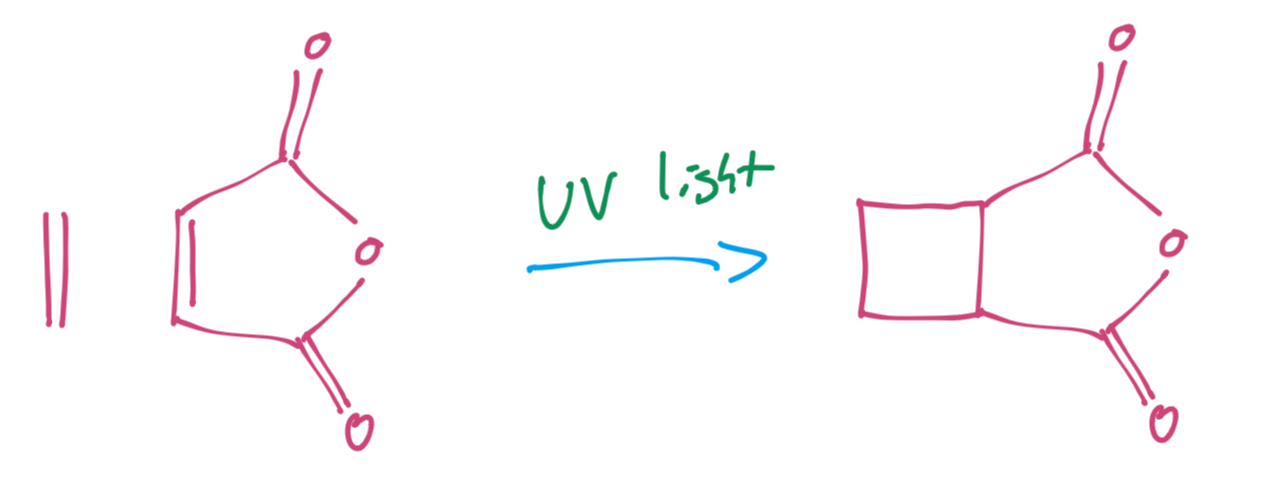 O
O
O
UV light
O
O
O